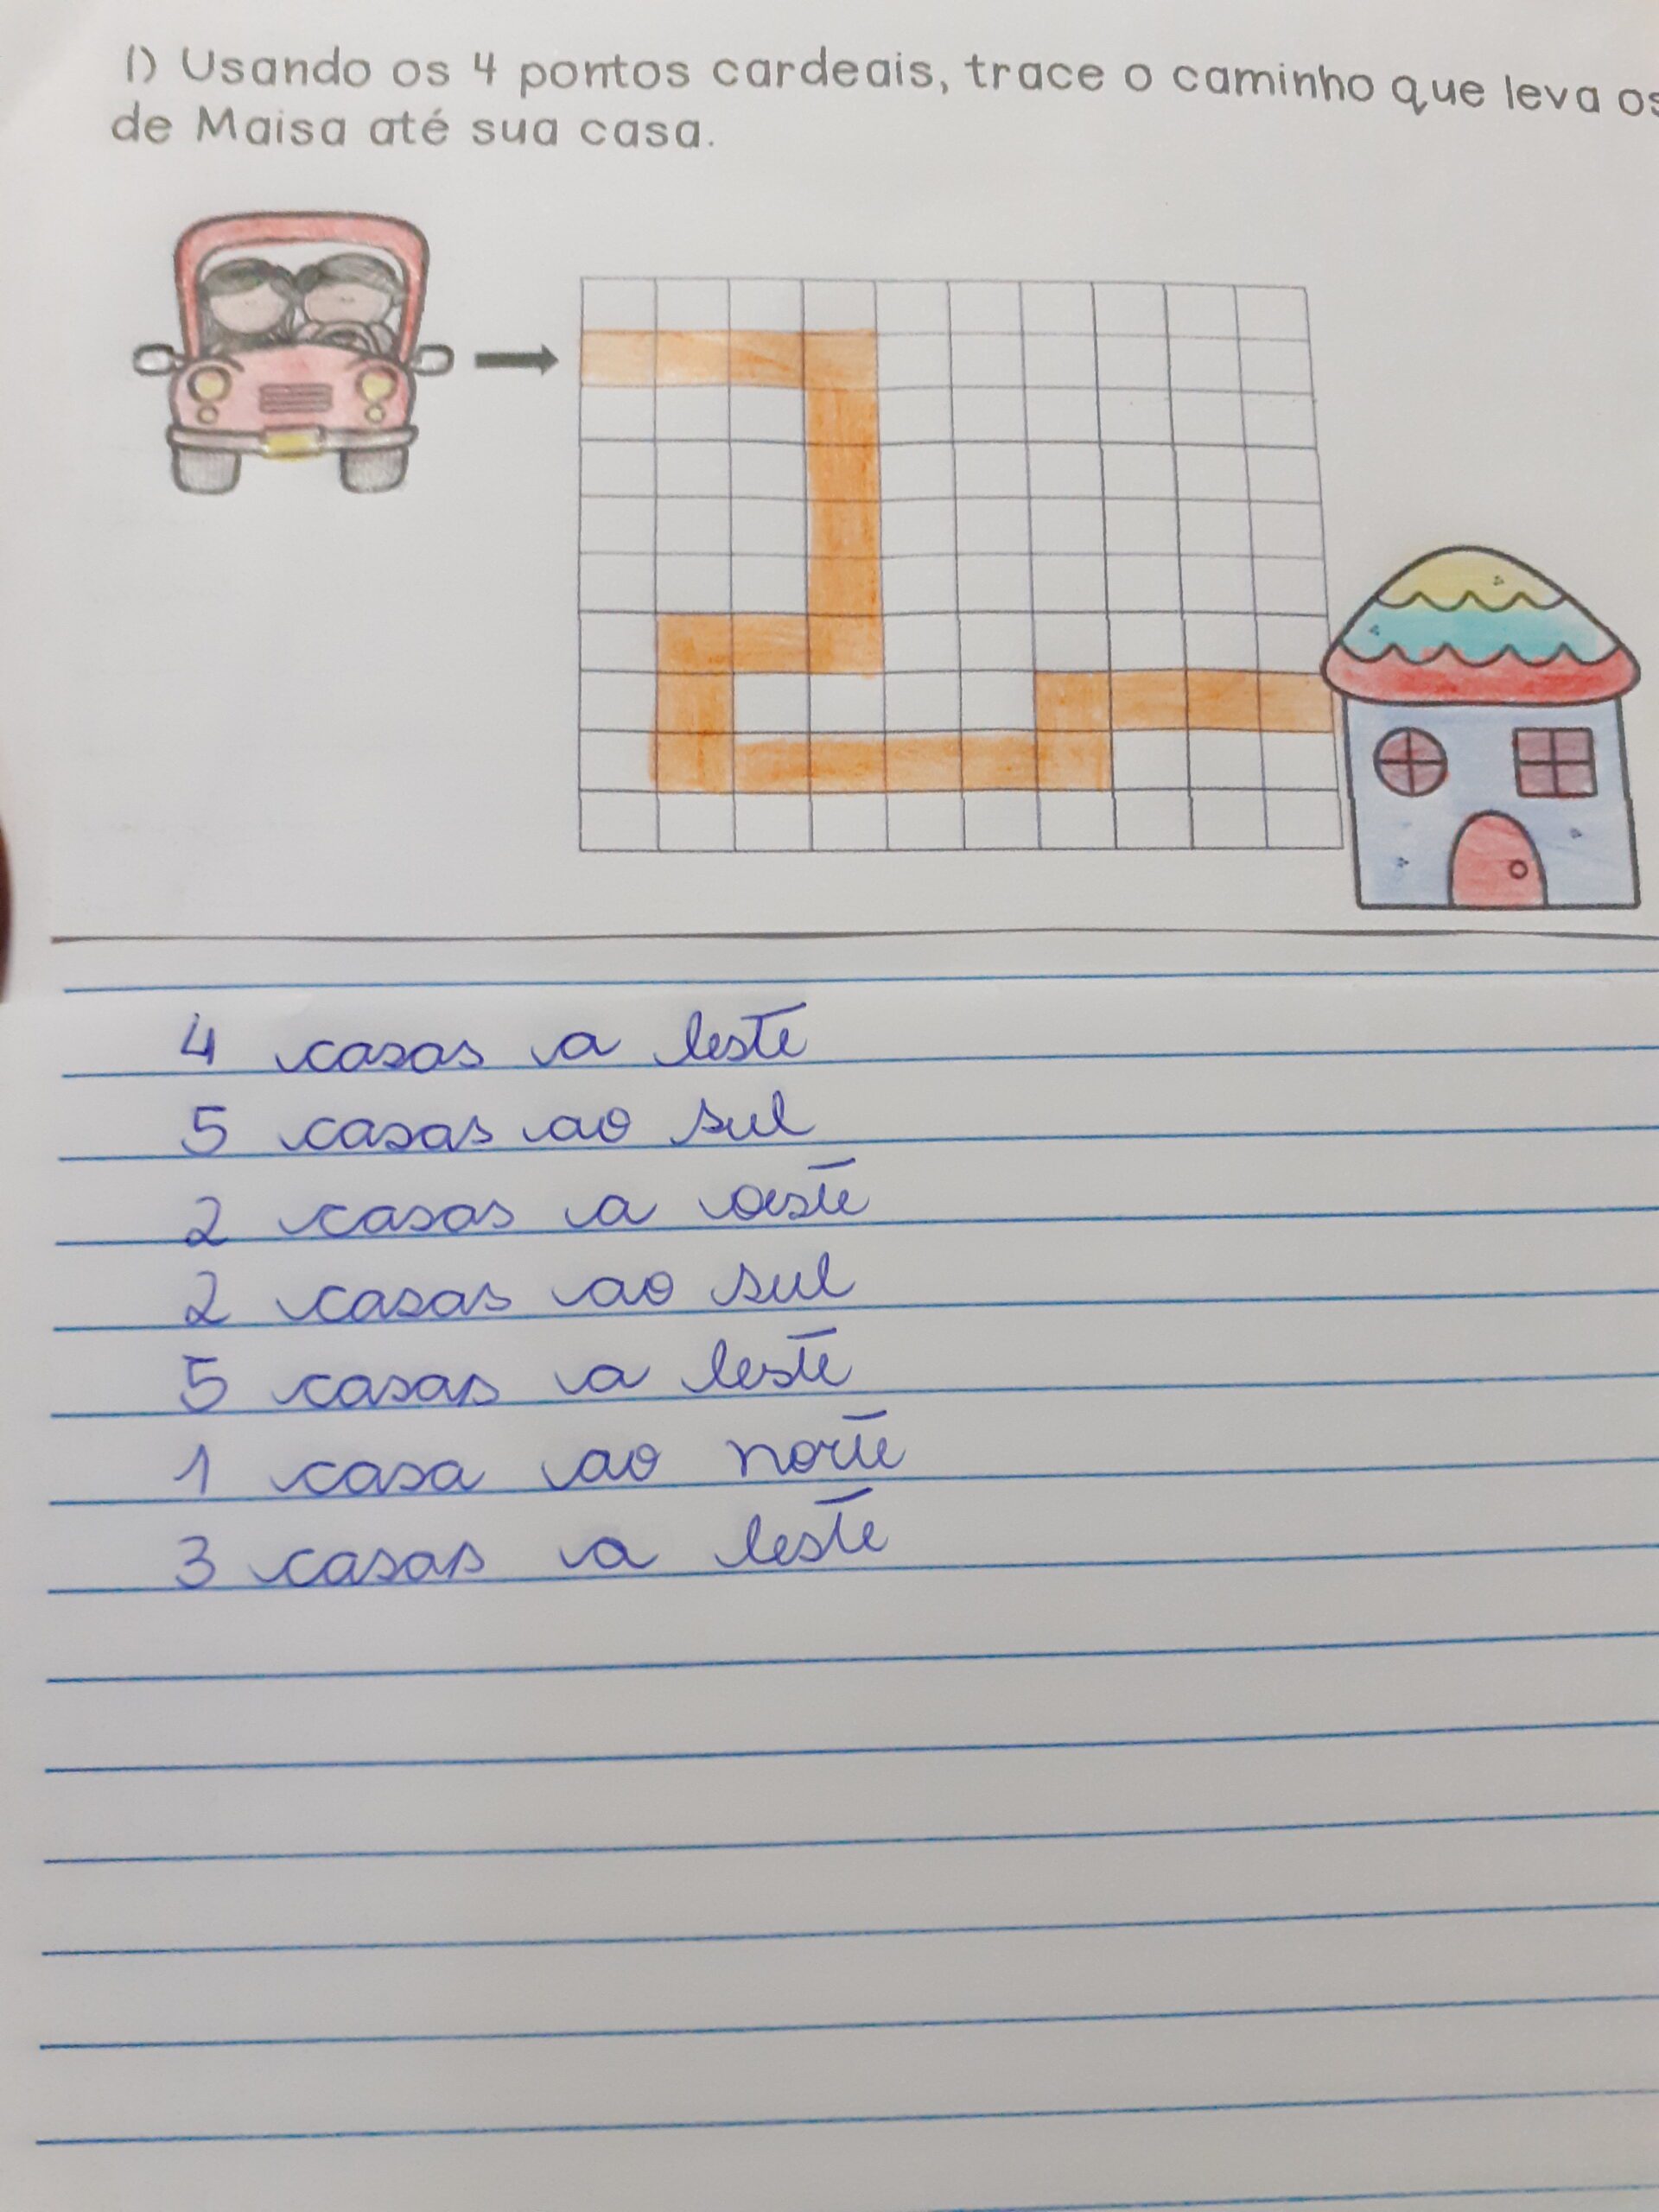 1) Usando os 4 pontos cardeais, trace o caminho que leva os
de Maisa até sua casa.
4 casas a leste
5 casas ao sul
2 casas a oeste
2 casas ao sul
5 casas a leste
1 casa ao norte
3 casas a leste